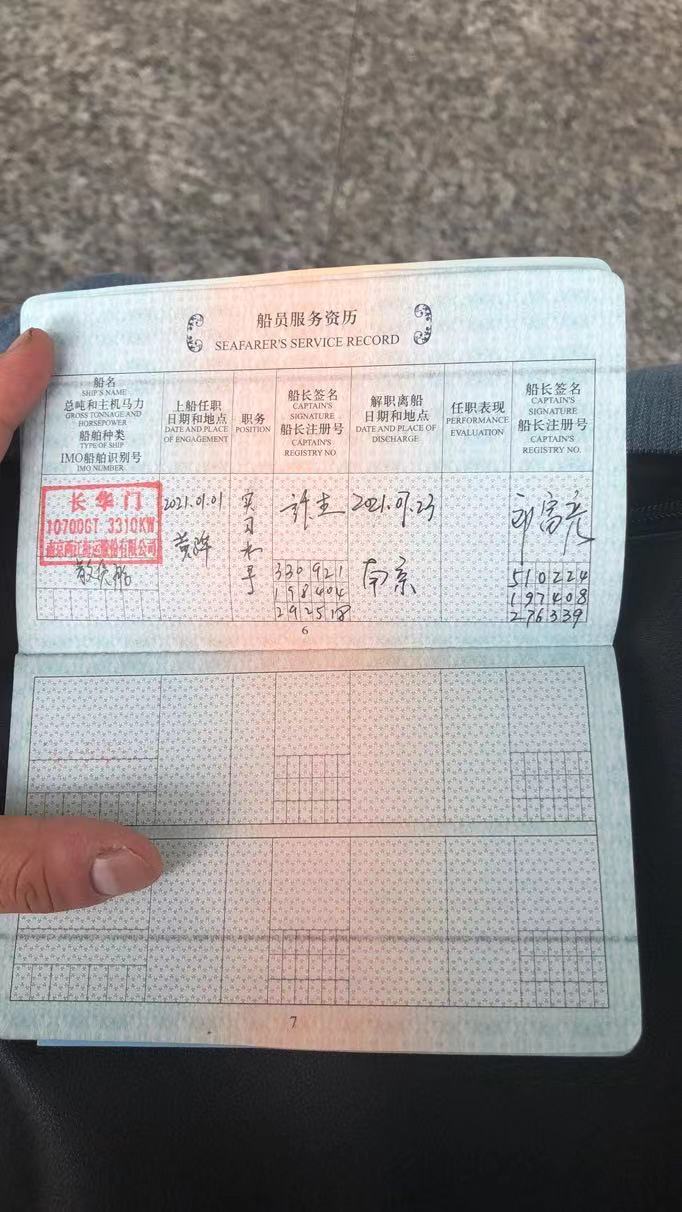 船员服务资历
SEAFARER'S SERVICE RECORD
船名
SHIP'S NAME
总吨和主机马力
GROSS TONNAGE AND
HORSEPOWER
船舶种类
TYPE OF SHIP
IMO船舶识别号
IMO NUMBER
上船任职
日期和地点
DATE AND PLACE
OF ENGAGEMENT
职务
POSITION
船长签名
CAPTAIN'S
SIGNATURE
船长注册号
CAPTAIN'S
REGISTRY NO.
解职离船
日期和地点
DATE AND PLACE OF
DISCHARGE
任职表现
PERFORMANCE
EVALUATION
船长签名
CAPTAIN'S
SIGNATURE
船长注册号
CAPTAIN'S
REGISTRY NO.
长华门
10700GT 3310KW
南京两江海运股份有限公司
散货船
2021.01.01
黄骅
实习水手
330921
198404
292518
2021.07.23
南京
510224
197408
276339
6
7